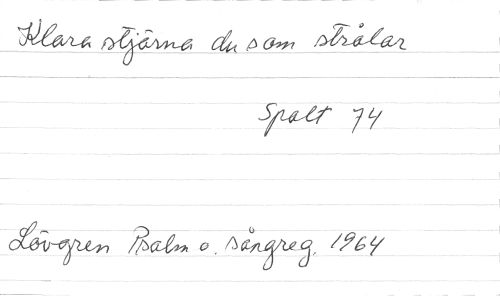 Klara stjärna du som strålar
Spalt 74
Lövgren Psalm o. sångreg. 1964